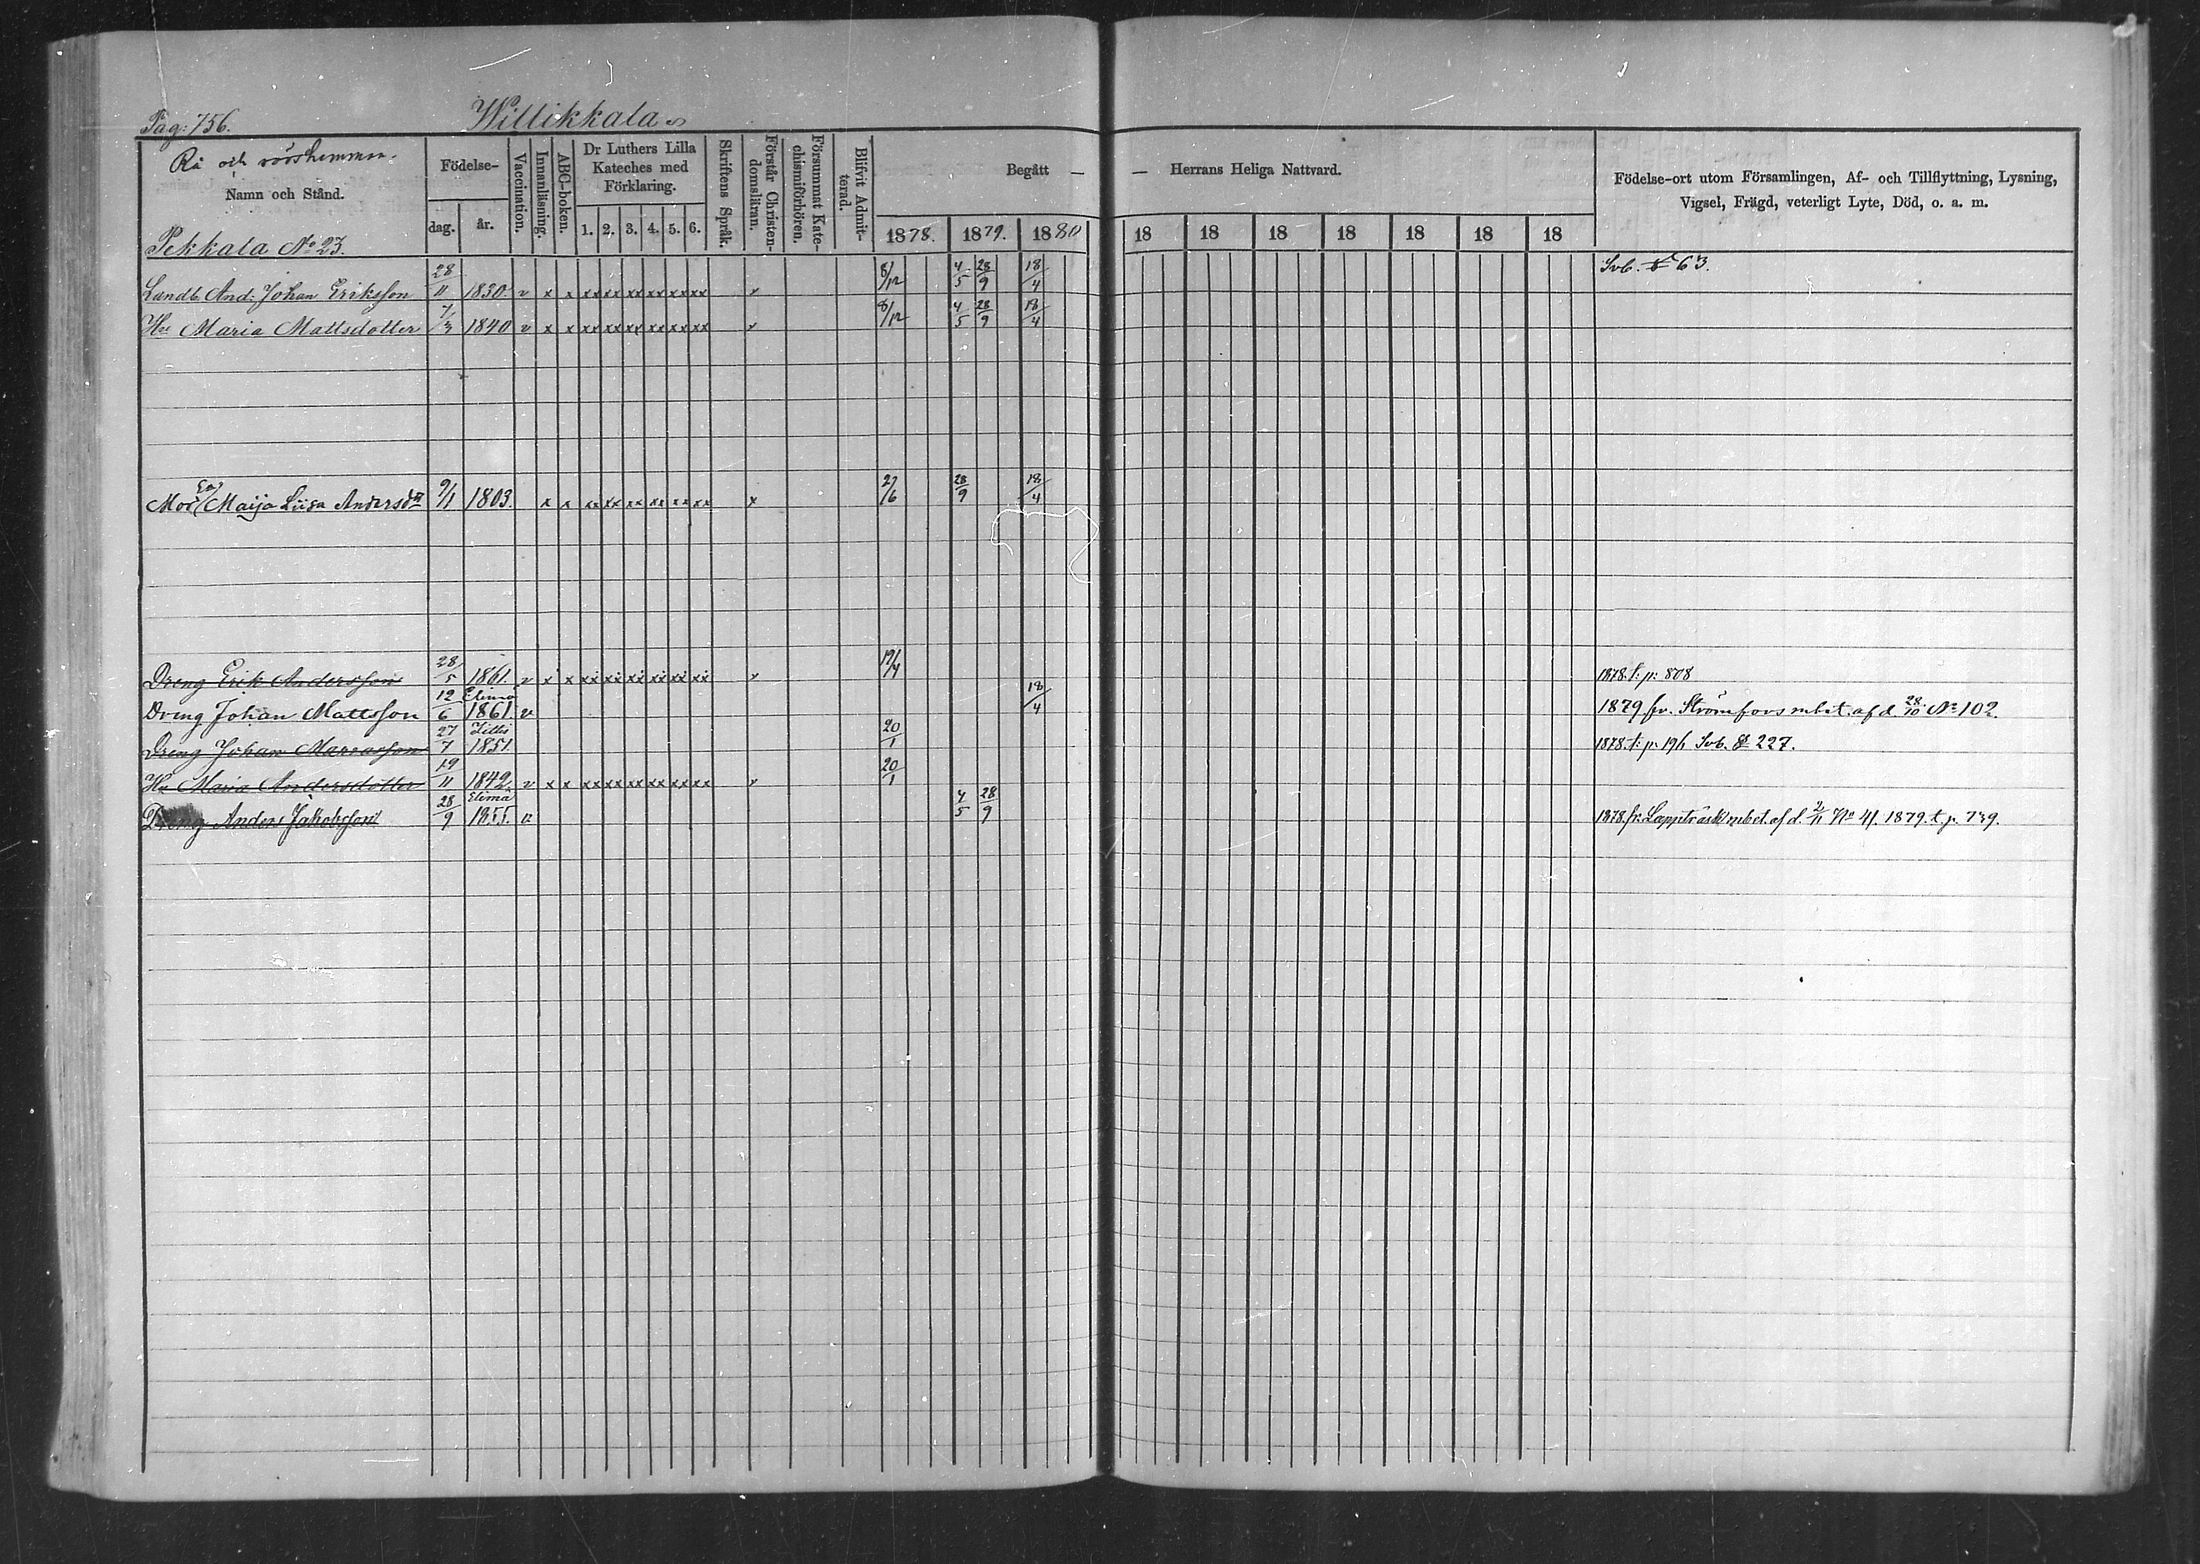 Pag: 756.
Willikkala
Rå och rörshemman.
Namn och Stånd.
Födelse-
dag.
år.
Vaccination.
Innanläsning.
ABC-boken.
Dr Luthers Lilla
Kateches med
Förklaring.
1. 2. 3. 4. 5. 6.
Skriftens Språk.
Förstår Christen-
domsläran.
Försummat Kate-
chismiförhören.
Blifvit Admit-
terad.
Begått — — Herrans Heliga Nattvard.
1878. 1879. 1880 18 18 18 18 18 18 18
Födelse-ort utom Församlingen, Af- och Tillflyttning, Lysning,
Vigsel, Frägd, veterligt Lyte, Död, o. a. m.
Pekkala No 23.
Landb. And: Johan Eriksson 28/11 1830. v x x xx xx xx xx xx xx x 8/12 4/5 28/9 18/4 Svb. 63.
Hu Maria Mattsdotter 7/3 1840 v x x xx xx xx xx xx xx x 8/12 4/5 28/9 18/4
Mod. Maija Liisa Andersdtr 9/1 1803. x x xx xx xx xx xx xx x 27/6 28/9 18/4
Dreng Erik Andersson 28/5 1861. v x x xx xx xx xx xx xx x 19/4 1878. t: p: 808
Dreng Johan Mattsson 12/6 Elimä 1861. v 18/4 1879 fr. Strömfors m bet. af d. 28/10 No 102.
Dreng Johan 27/7 1851. 20/1 1878. t: p. 196 Svb. 227.
Hu Maria Andersdotter 19/11 1842 v x x xx xx xx xx xx xx x 20/1
Dreng Anders Jakobsson 28/9 Elimä 1855. v 4/5 28/9 1878. fr. Lappträsk m bet. af d. 2/11 No 41. 1879. t. p. 739.